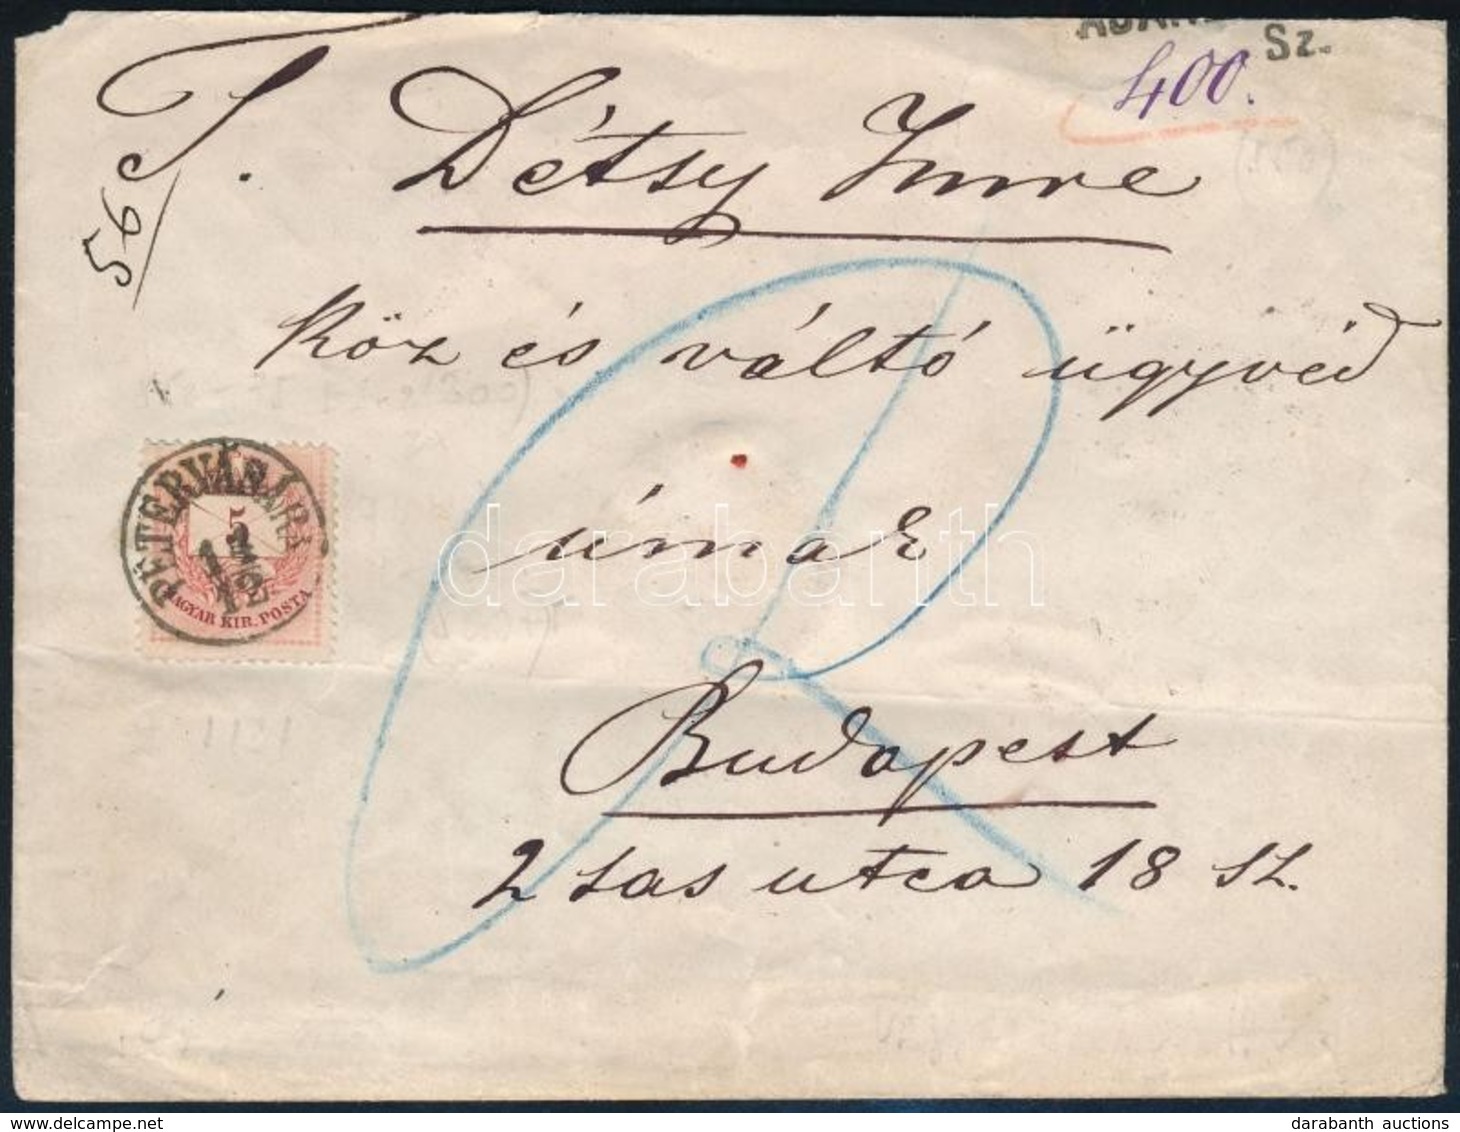 Sz.
400.
T. Détsy Imre
56
köz és váltó ügyvéd
PÉTERVÁRA
5
MAGYAR KIR. POSTA
úrnak
darabanth
Budapest
2 sas utca 18 sz.
darabanth auctions